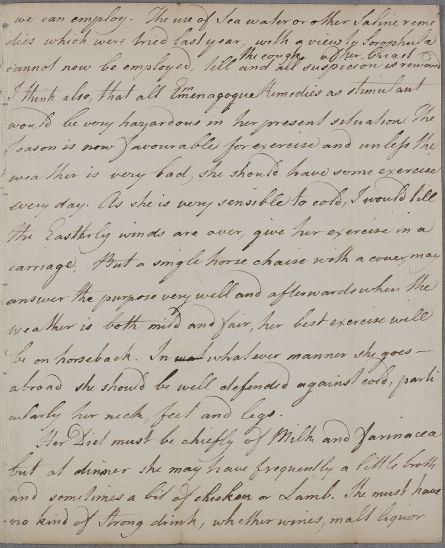 we can employ. The use of Sea water or other Saline reme
dies which were tried last year, with a view to Scrophula
cannot now be employed, till the cough and all suspicion of her breast is removed
I think also, that all Emenagogue Remedies as stimulant
would be very hazardous in her present situation. The
season is now favourable for exercise and unless the
weather is very bad, she should have some exercise
every day. As she is very sensible to cold, I would till
the Easterly winds are over, give her exercise in a
carriage. But a single horse chaise with a cover, may
answer the purpose very well and afterwards when the
weather is both mild and fair, her best exercise will
be on horseback. In whatever manner she goes –
abroad she should be well defended against cold, parti
cularly her neck, feet and legs.
Her Diet must be chiefly of Milk and farinacea
but at dinner she may have frequently a little broth
and sometimes a bit of chicken or Lamb. She must have
no kind of strong drink, whether wines, malt liquor